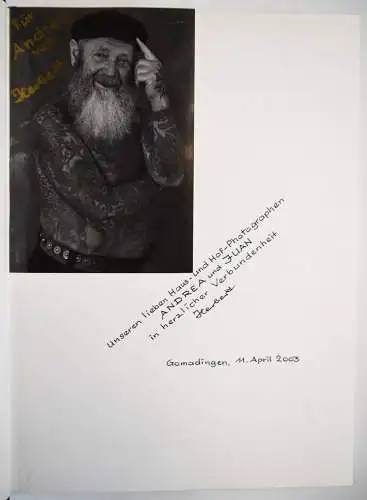 Für
Andrea
Herbert
Unseren lieben Haus- und Hof-Photographen
ANDREA und JUAN
in herzlicher Verbundenheit
Herbert
Gomadingen, 11. April 2003